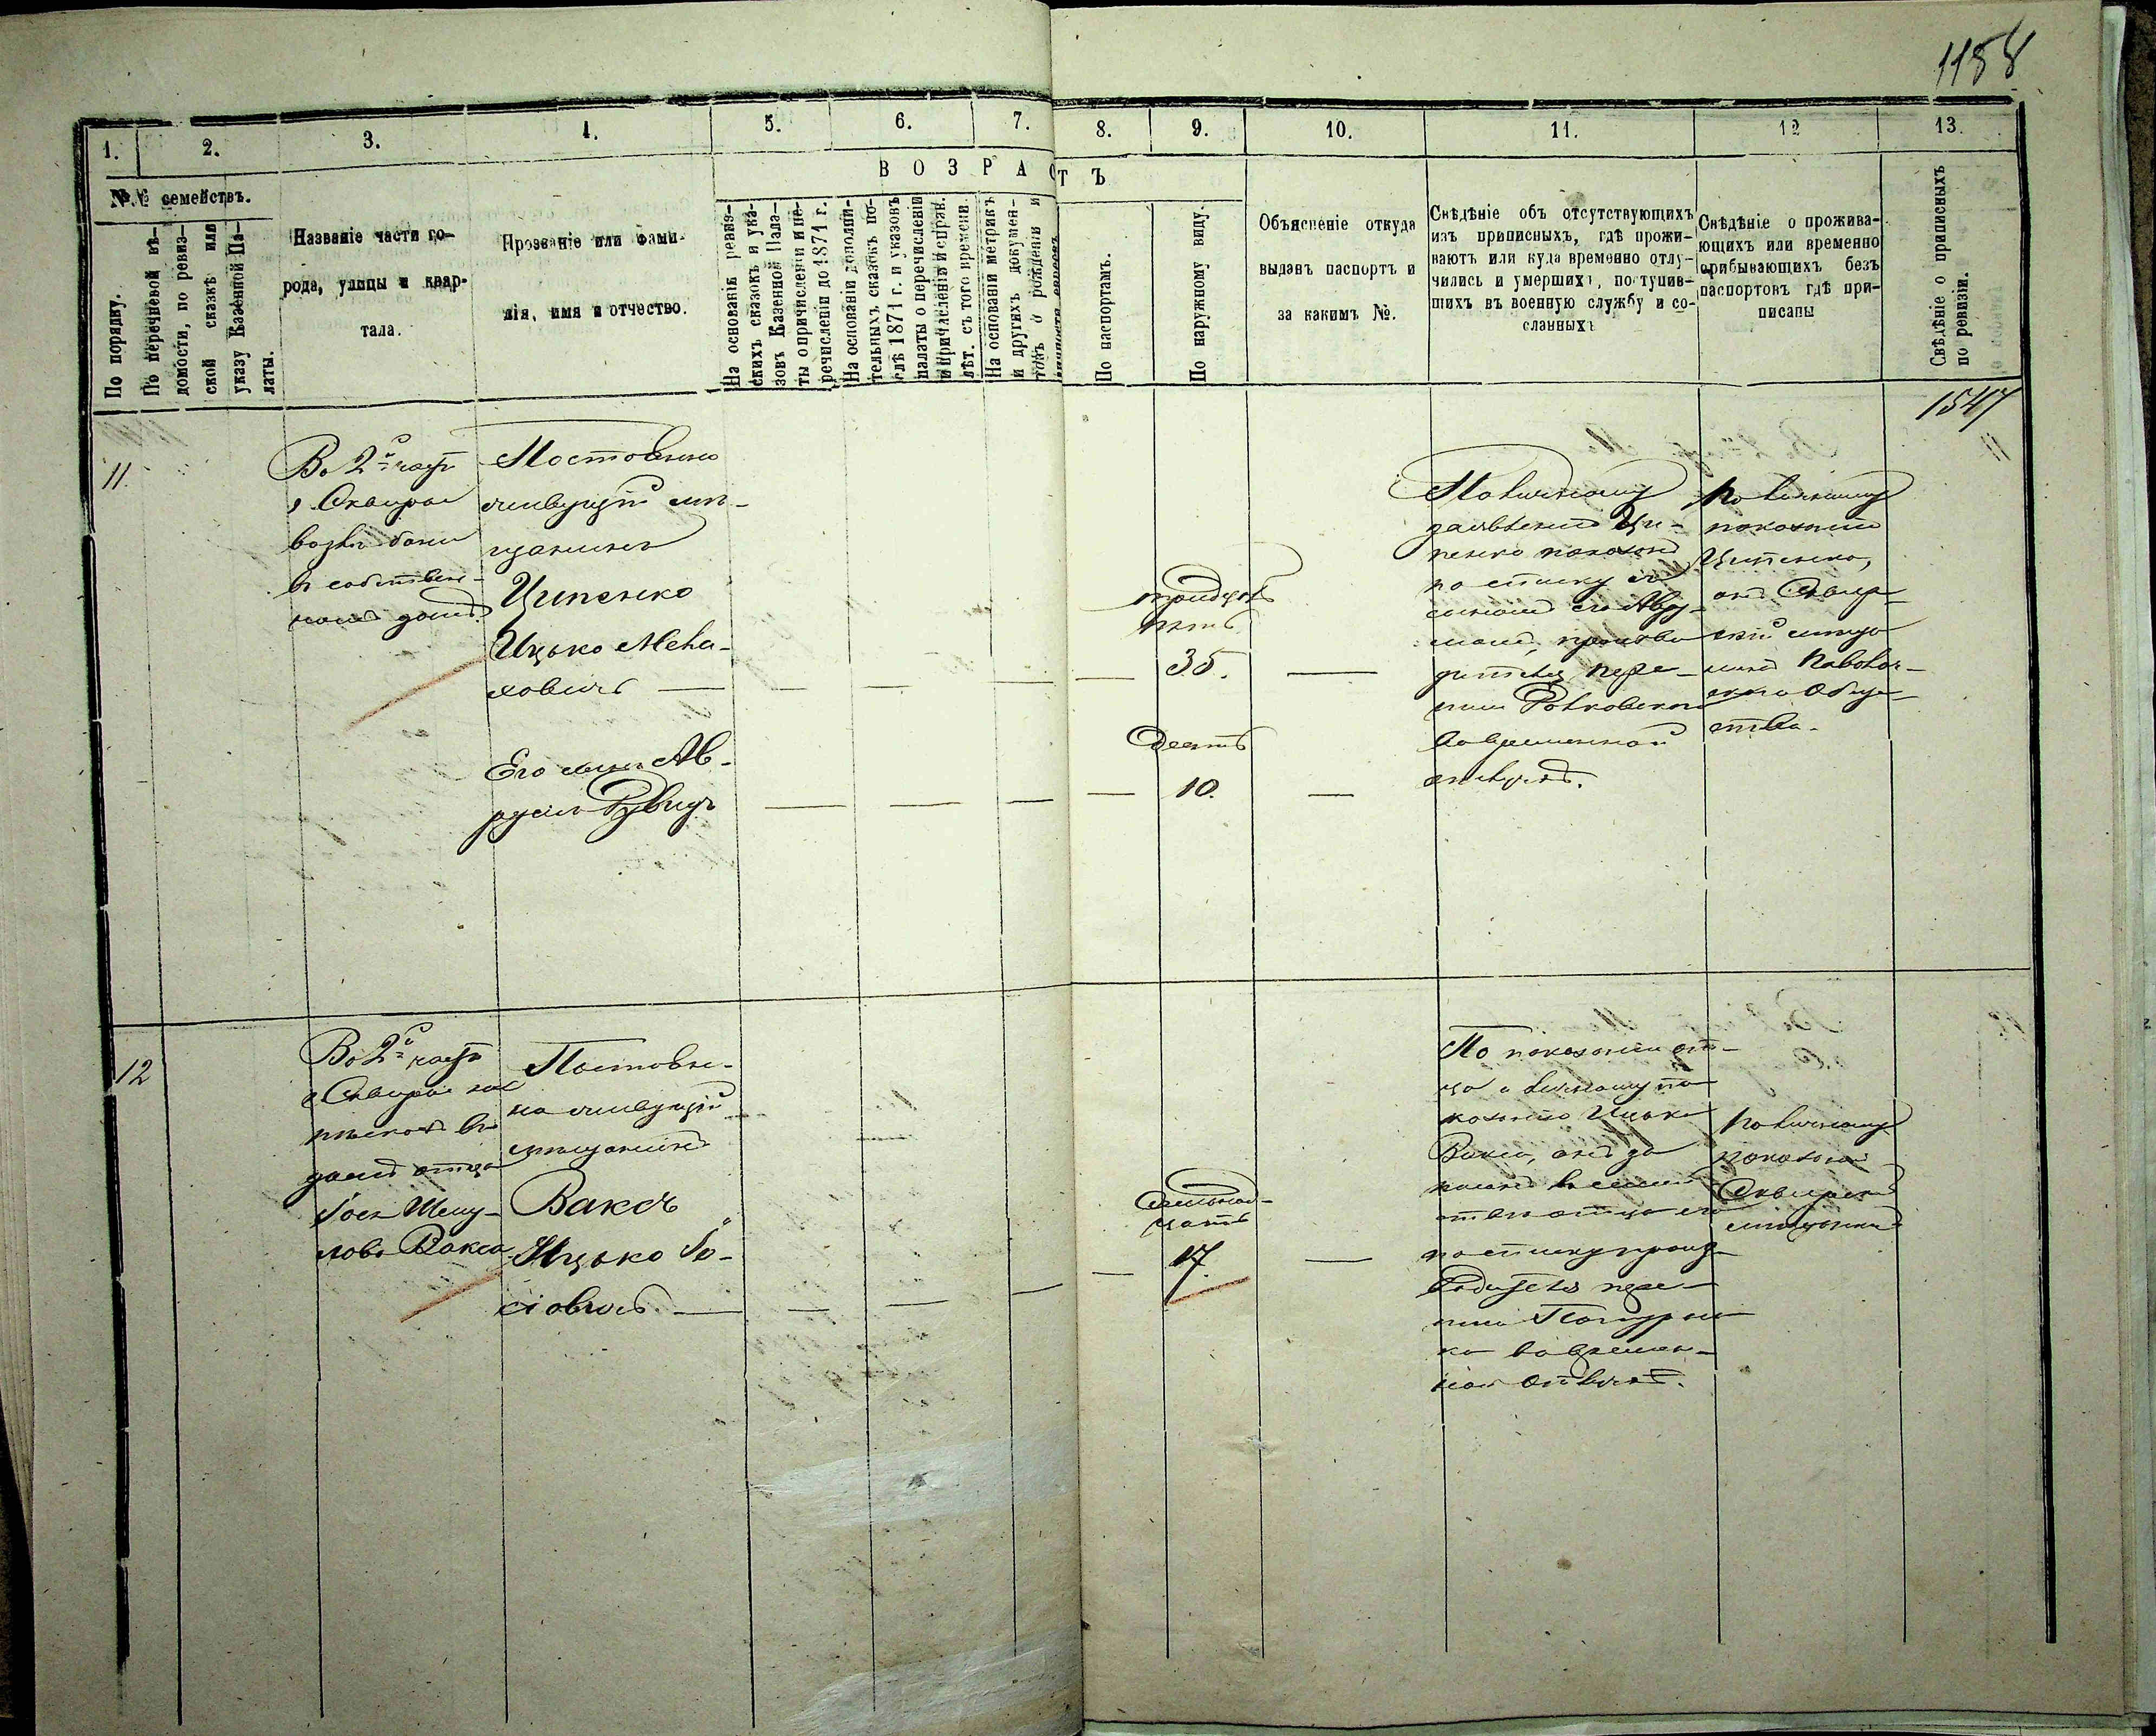 1158
1.
2.
3.
4.
5.
6.
7.
8.
9.
10.
11.
12
13.
№№ семействъ.
По порядку.
По перечневой вѣ-
домости, по ревиз-
ской сказкѣ или
указу Казенной Па-
латы.
Названіе части го-
рода, улицы и квар-
тала.
Прозваніе или фами-
лія, имя и отчество.
ВОЗРАСТЪ
На основаніи ревиз-
скихъ сказокъ и ука-
зовъ Казенной Пала-
ты о причисленіи и пе-
речисленіи до 1871 г.
На основаніи дополни-
тельныхъ сказокъ по-
слѣ 1871 г. и указовъ
палаты о перечисленіи
и причисленіи и справ.
лѣт. съ того времени.
На основаніи метрикъ
и другихъ докумен-
товъ о рожденіи и
По паспортамъ.
По наружному виду.
Объясненіе откуда
выданъ паспортъ и
за какимъ №.
Свѣдѣніе объ отсутствующихъ
изъ приписныхъ, гдѣ прожи-
ваютъ или куда временно отлу-
чились и умершихъ, поступив-
шихъ въ военную службу и со-
сланныхъ
Свѣдѣніе о прожива-
ющихъ или временно
прибывающихъ безъ
паспортовъ гдѣ при-
писаны
Свѣдѣніе о приписныхъ
по ревизіи.
1547
11.
Во 2й части
г. Сквиры
возлѣ бани
въ собствен-
номъ домѣ.
Постоянно
живущій мѣ-
щанинъ
Ципенко
Ицько Меле-
ховичъ
тридцать
пять
35.
Его сынъ Ав-
румъ Рувинъ
Десять
10.
По личному
заявленію Ци-
пенко
по списку съ
сыномъ его Авру-
момъ,
во временной
отлучкѣ.
По личному
показанію
Ципенко,
онъ Сквир-
скій мѣща-
нинъ Паволоч-
скаго Обще-
ства.
12
Во 2й части
г. Сквиры на
пескахъ въ
домѣ отца
Іося Шему-
лова Вакса
Постоян-
но живущій
мѣщанинъ
Ваксъ
Ицько Іо-
сіовичъ
Семнад-
цать
17.
По показанію от-
ца и личному по-
казанію Ицька
Вакса, онъ за-
писанъ въ семей-
ствѣ отца его
по списку
во времен-
ной отлучкѣ.
По личному
показанію
Сквирскій
мѣщанинъ